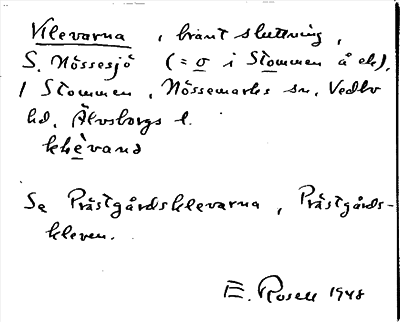 Klevarna, brant sluttning,
S. Nössesjö (= o i Stommen å ek),
1 Stommen, Nössemarks sn, Vedbo
hd, Älvsborgs l.
klèvana
Se Prästgårdsklevarna, Prästgårds-
kleven.
E. Rosell 1948